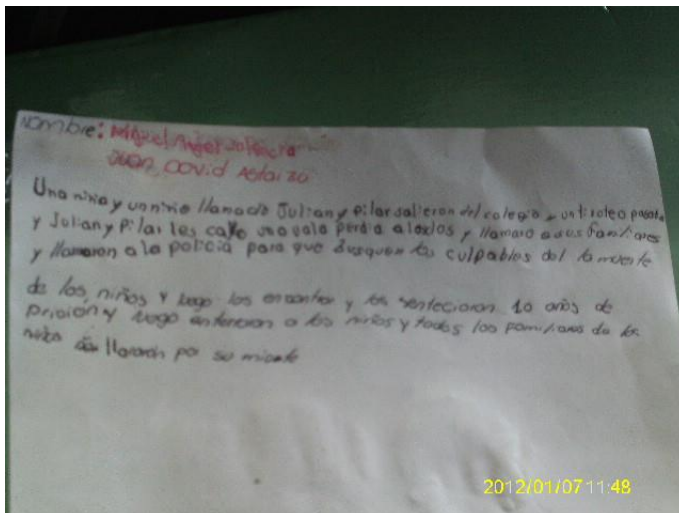 Nombre: Miguel Angel Valencia
Juan David Astaiza
Una niña y un niño llamado Julian y Pilar salieron del colegio un tiroteo pasaba
y Julian y Pilar les callo una vala perdia a los dos y llamaro a sus familiares
y llamaron a la policia para que busquen los culpables del la muerte
de los niños y luego los encontro y los senteciaron 10 años de
prision y luego enterraron a los niños y todos los familiares de los
niños llararon por su muerte
2012/01/07 11:48